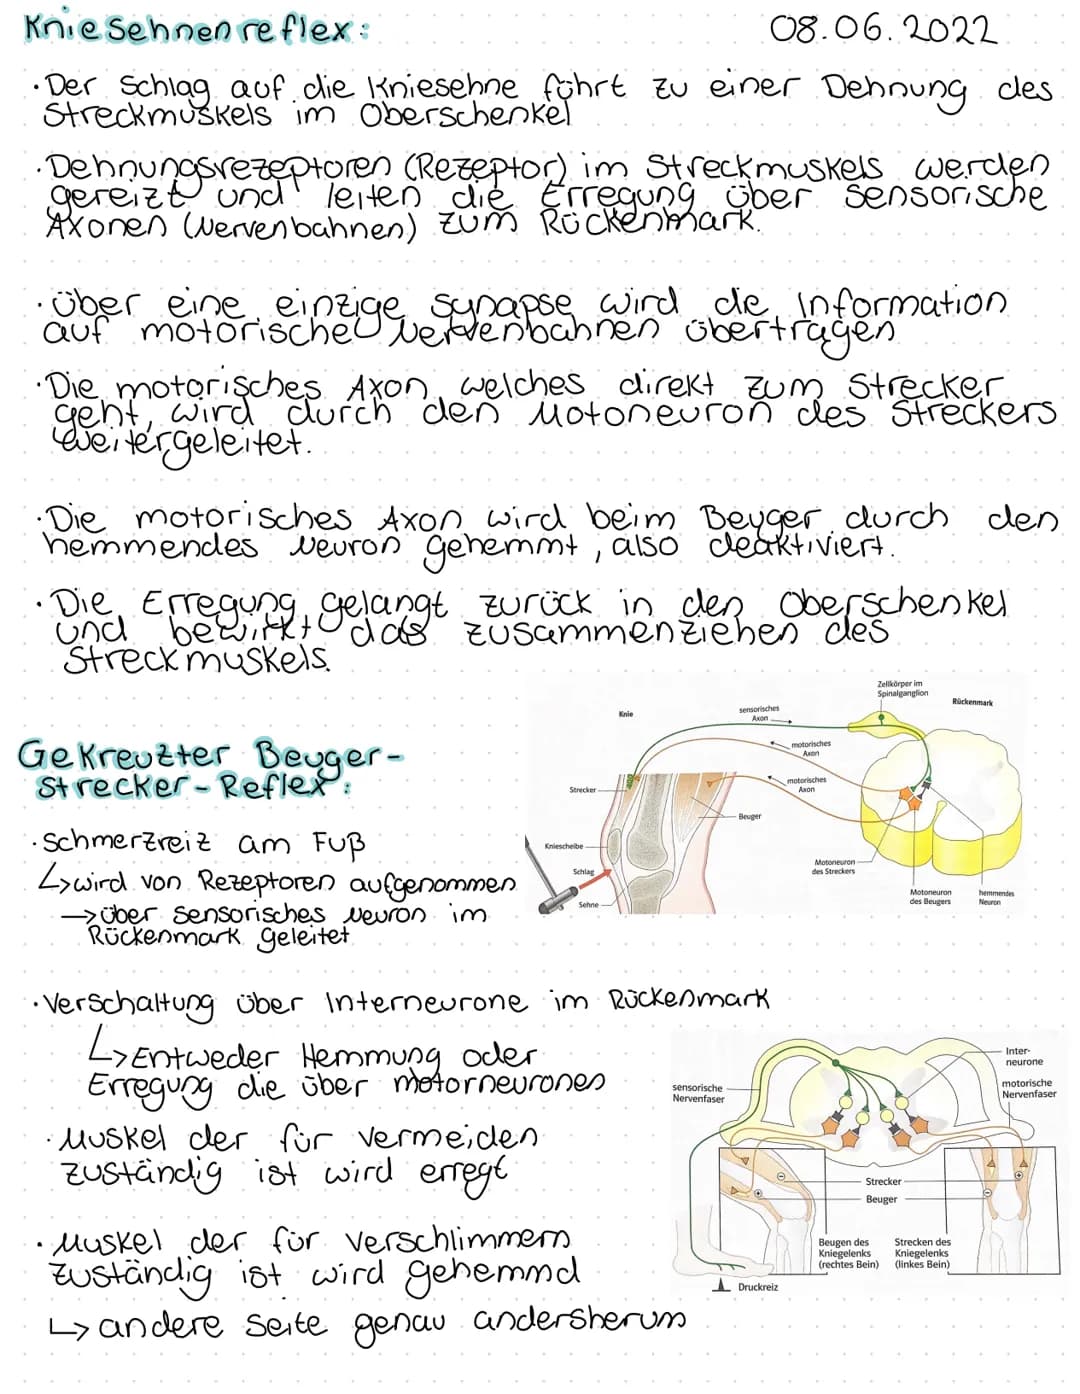 Kniesehnenreflex: 08.06.2022
· Der Schlag auf die Kniesehne führt zu einer Dehnung des
Streckmuskels im Oberschenkel
· Dehnungsrezeptoren (Rezeptor) im Streckmuskels werden
gereizt und leiten die Erregung über sensorische
Axonen (Nervenbahnen) zum Rückenmark.
· über eine einzige Synapse wird die Information
auf motorische Nervenbahnen übertragen
· Die motorisches Axon, welches direkt zum Strecker
geht, wird durch den Motoneuron des Streckers
weitergeleitet.
· Die motorisches Axon wird beim Beuger durch den
hemmendes Neuron gehemmt, also deaktiviert.
· Die Erregung gelangt zurück in den Oberschenkel
und bewirkt das zusammenziehen des
Streckmuskels.
Zellkörper im
Spinalganglion
Rückenmark
Knie
sensorisches
Axon
motorisches
Axon
motorisches
Axon
Strecker
Beuger
Kniescheibe
Schlag
Sehne
Motoneuron
des Streckers
Motoneuron
des Beugers
hemmendes
Neuron
Gekreuzter Beuger-
Strecker-Reflex:
· Schmerzreiz am Fuß
↳ wird von Rezeptoren aufgenommen
→ über sensorisches Neuron im
Rückenmark geleitet
· Verschaltung über Interneurone im Rückenmark
↳ Entweder Hemmung oder
Erregung die über motorneurones
· Muskel der für vermeiden
zuständig ist wird erregt
· Muskel der für verschlimmern
zuständig ist wird gehemmd
↳ andere Seite genau andersherum
Inter-
neurone
sensorische
Nervenfaser
motorische
Nervenfaser
Strecker
Beuger
Beugen des
Kniegelenks
(rechtes Bein)
Strecken des
Kniegelenks
(linkes Bein)
Druckreiz